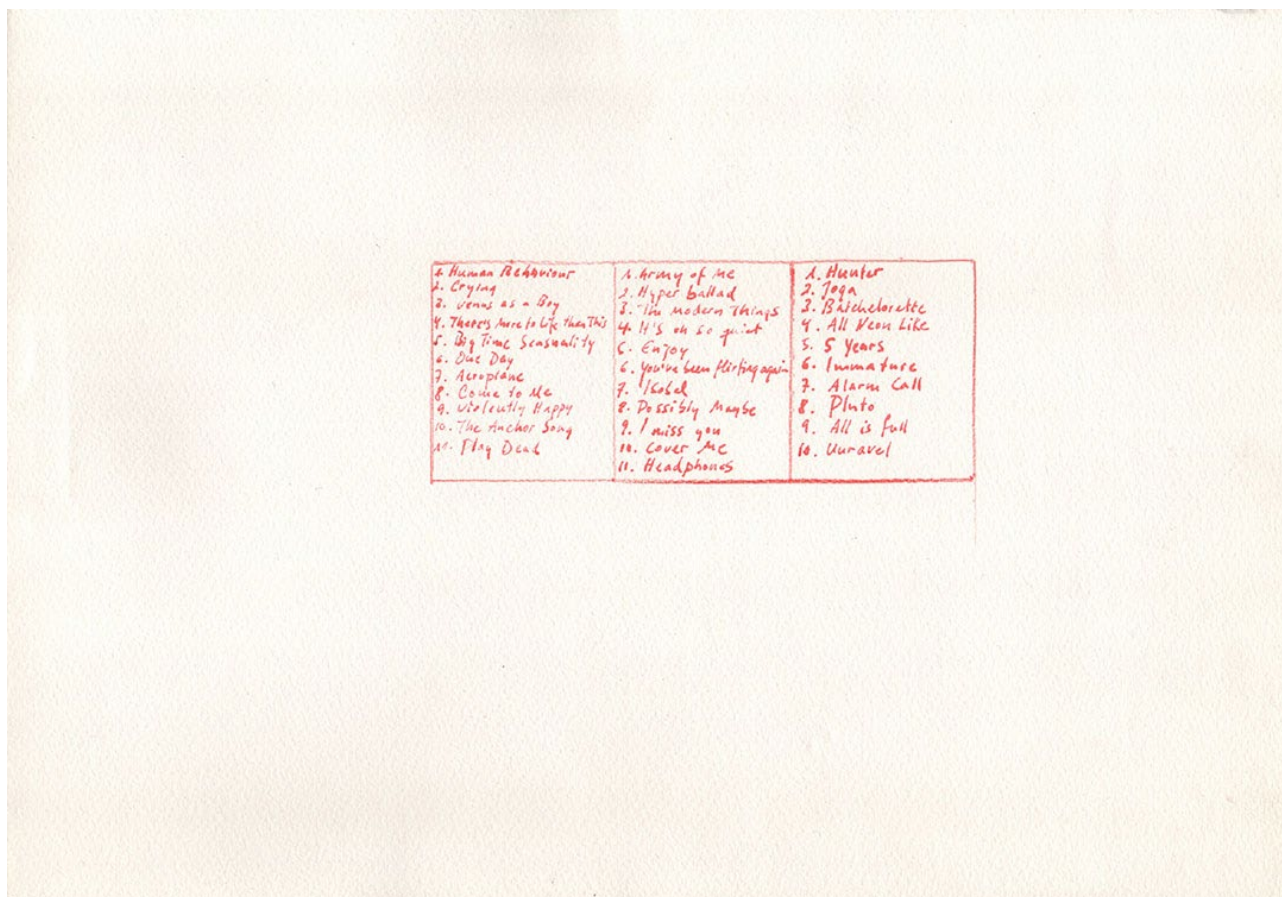 1. Human Behaviour
2. Crying
3. Venus as a Boy
4. There's more to Life than This
5. Big Time Sensuality
6. One Day
7. Aeroplane
8. Come to Me
9. Violently Happy
10. The Anchor Song
11. Play Dead
1. Army of Me
2. Hyper ballad
3. The Modern Things
4. It's oh so quiet
5. Enjoy
6. You've been flirting again
7. Isobel
8. Possibly Maybe
9. I miss you
10. Cover Me
11. Headphones
1. Hunter
2. Joga
3. Batchelorette
4. All Neon Like
5. 5 Years
6. Immature
7. Alarm Call
8. Pluto
9. All is full
10. Unravel